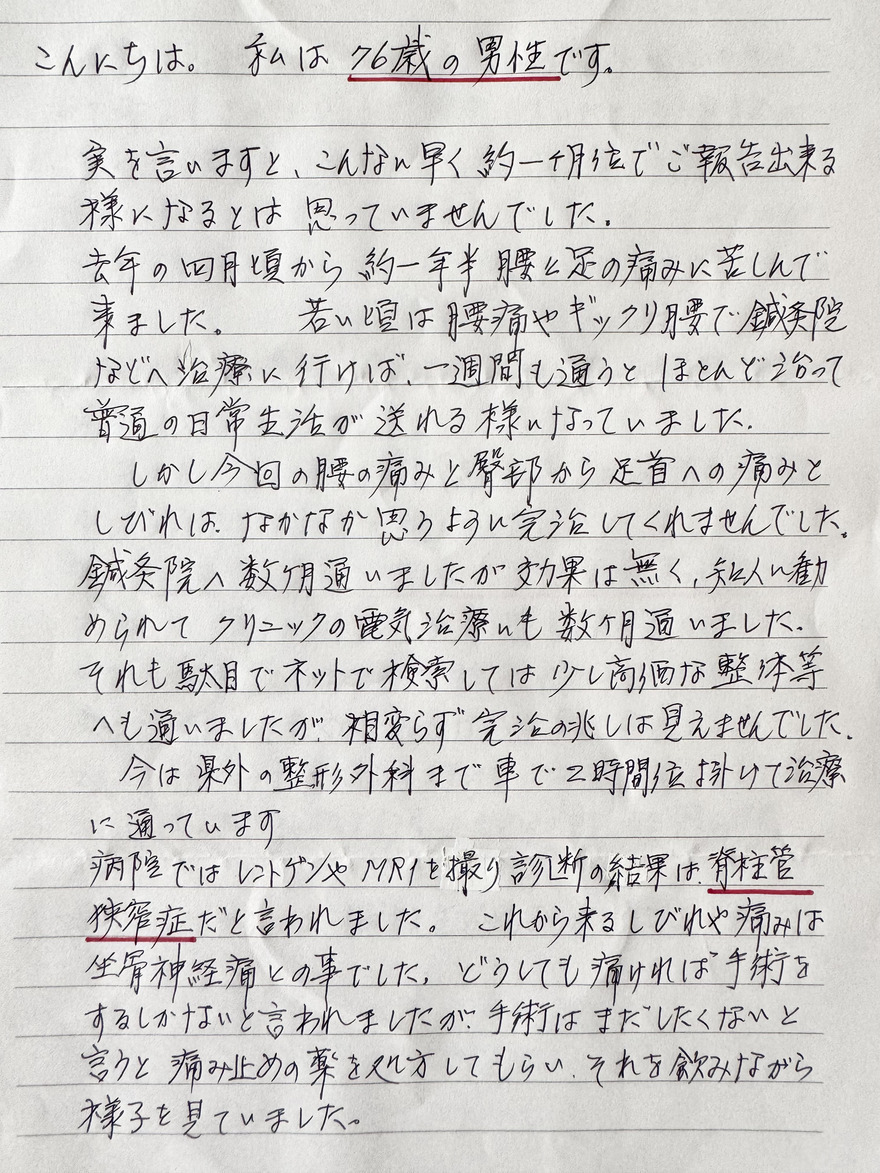 こんにちは。 私は 76歳の男性です。
実を言いますと、こんなに早く約一ヶ月位でご報告出来る
様になるとは思っていませんでした。
去年の四月頃から約一年半腰と足の痛みに苦しんで
来ました。 若い頃は腰痛やギックリ腰で鍼灸院
などへ治療に行けば、一週間も通うとほとんど治って
普通の日常生活が送れる様になっていました。
しかし今回の腰の痛みと臀部から足首への痛みと
しびれは、なかなか思うように完治してくれませんでした。
鍼灸院へ数ケ月通いましたが効果は無く、知人に勧
められてクリニックの電気治療にも数ケ月通いました。
それも駄目でネットで検索しては少し高価な整体等
へも通いましたが、相変らず完治の兆しは見えませんでした。
今は県外の整形外科まで車で2時間位掛けて治療
に通っています
病院ではレントゲンやMRIを撮り診断の結果は、脊柱管
狭窄症だと言われました。 これから来るしびれや痛みは
坐骨神経痛との事でした。どうしても痛ければ手術を
するしかないと言われましたが、手術はまだしたくないと
言うと痛み止めの薬を処方してもらい、それを飲みながら
様子を見ていました。